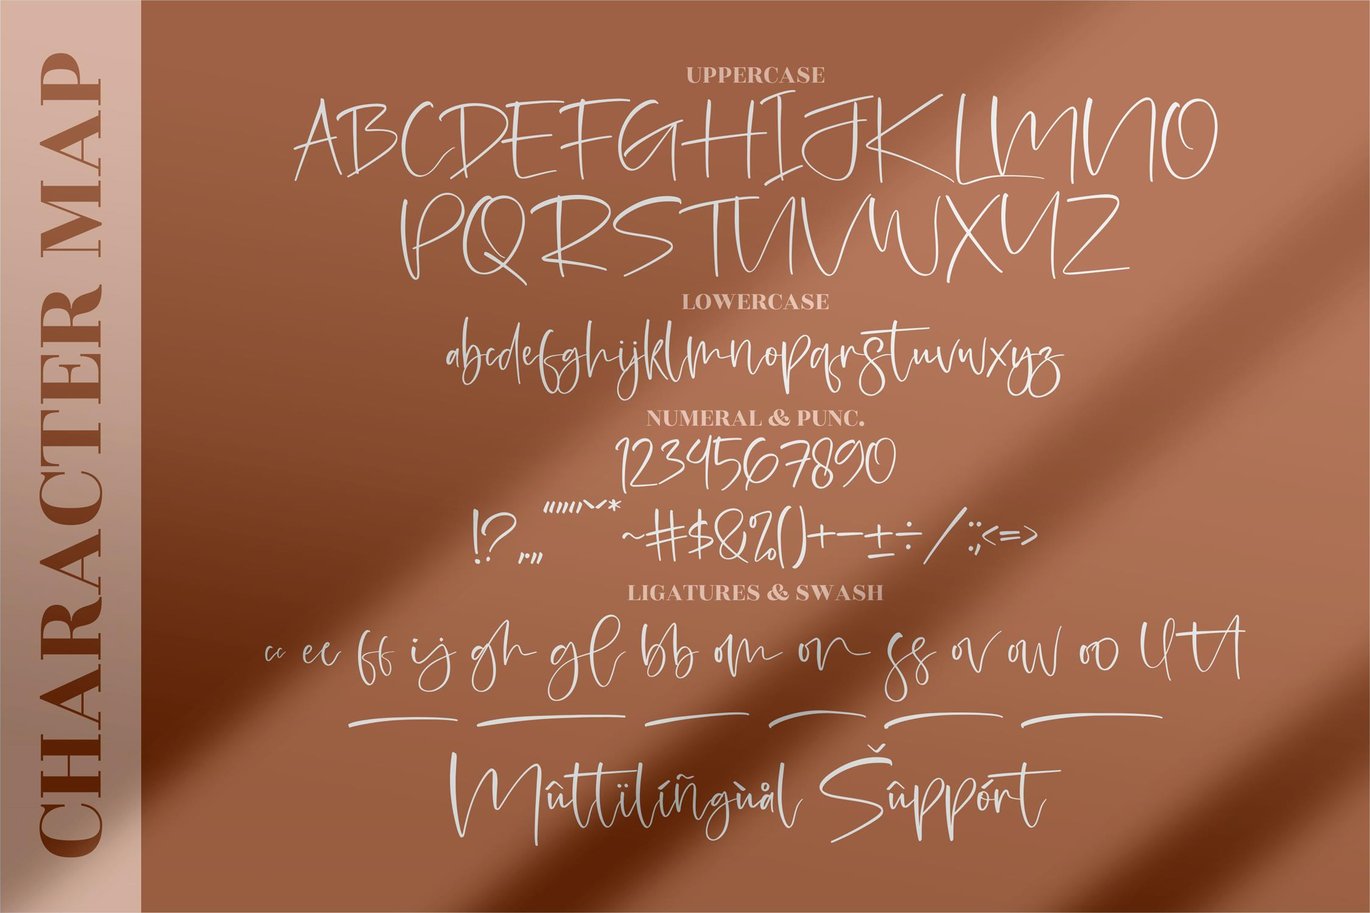 CHARACTER MAP
UPPERCASE
ABCDEFGHIJKLMNO
PQRSTUVWXYZ
LOWERCASE
abcdefghijklmnopqrstuvwxyz
NUMERAL & PUNC.
1234567890
!?.,
~#$&%()+-±÷/:;<=>
LIGATURES & SWASH
cc ee ff ij gh gl bb am on ss ov ow oo ll tt
Mûttïlíñgùål Šûppórt